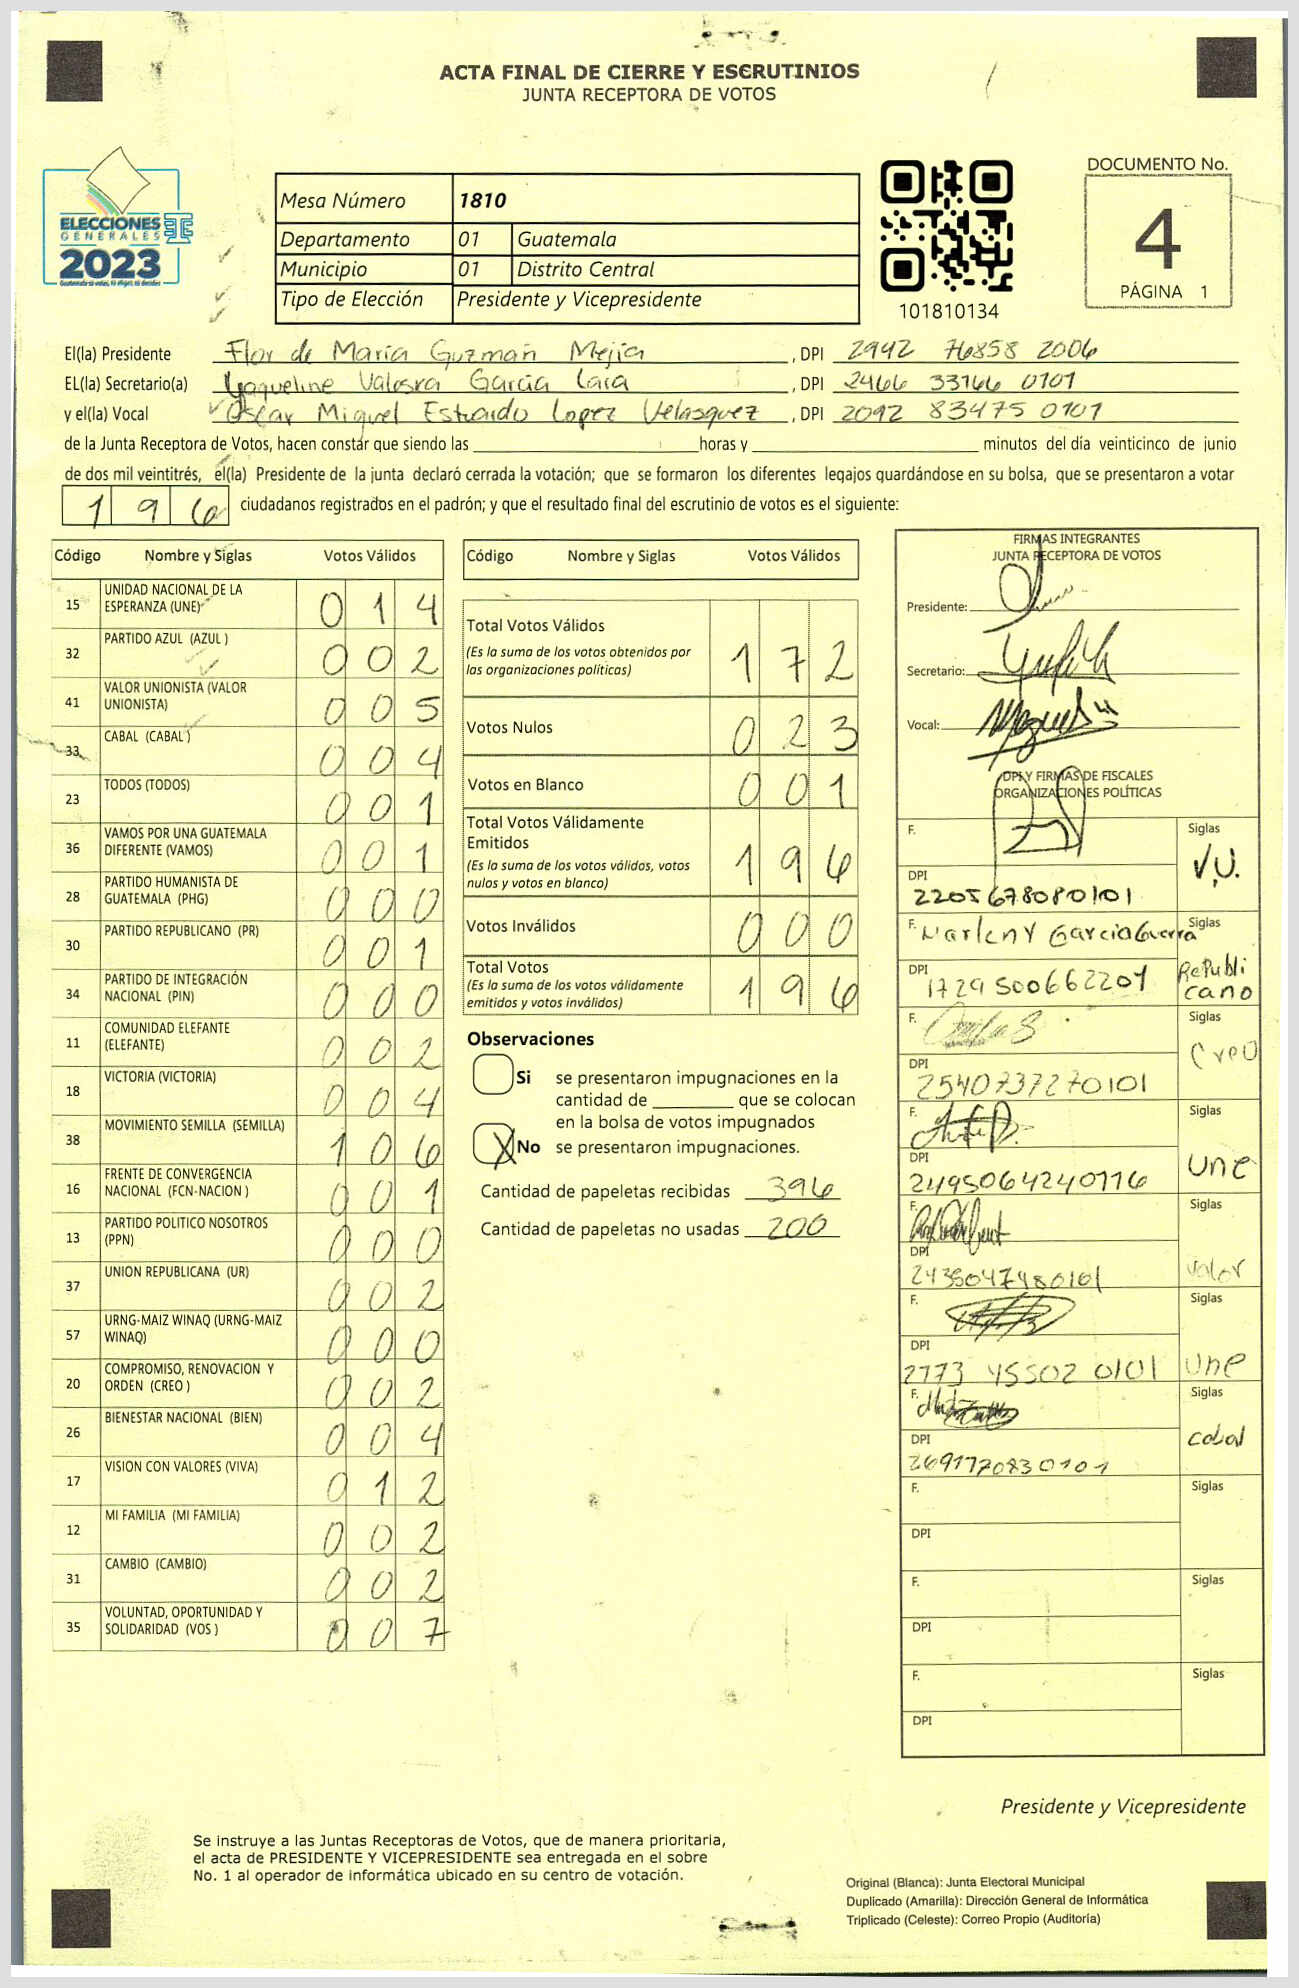 ACTA FINAL DE CIERRE Y ESCRUTINIOS
JUNTA RECEPTORA DE VOTOS
ELECCIONES
GENERALES
2023
Guatemala sí votas, tú eliges, tú decides
Mesa Número 1810
Departamento 01 Guatemala
Municipio 01 Distrito Central
Tipo de Elección Presidente y Vicepresidente
101810134
DOCUMENTO No.
4
PÁGINA 1
El(la) Presidente Flor de María Guzmán Mejia, DPI 2942 76858 2006
EL(la) Secretario(a) García Lara, DPI 2466 33166 0101
y el(la) Vocal Oscar Miguel Estuardo Lopez Velasquez, DPI 2092 83475 0101
de la Junta Receptora de Votos, hacen constar que siendo las horas y minutos del día veinticinco de junio
de dos mil veintitrés, el(la) Presidente de la junta declaró cerrada la votación; que se formaron los diferentes legajos guardándose en su bolsa, que se presentaron a votar
196 ciudadanos registrados en el padrón; y que el resultado final del escrutinio de votos es el siguiente:
Código Nombre y Siglas Votos Válidos
15 UNIDAD NACIONAL DE LA ESPERANZA (UNE) 014
32 PARTIDO AZUL (AZUL ) 002
41 VALOR UNIONISTA (VALOR UNIONISTA) 005
33 CABAL (CABAL ) 004
23 TODOS (TODOS) 001
36 VAMOS POR UNA GUATEMALA DIFERENTE (VAMOS) 001
28 PARTIDO HUMANISTA DE GUATEMALA (PHG) 000
30 PARTIDO REPUBLICANO (PR) 001
34 PARTIDO DE INTEGRACIÓN NACIONAL (PIN) 000
11 COMUNIDAD ELEFANTE (ELEFANTE) 002
18 VICTORIA (VICTORIA) 004
38 MOVIMIENTO SEMILLA (SEMILLA) 106
16 FRENTE DE CONVERGENCIA NACIONAL (FCN-NACION ) 001
13 PARTIDO POLITICO NOSOTROS (PPN) 000
37 UNION REPUBLICANA (UR) 002
57 URNG-MAIZ WINAQ (URNG-MAIZ WINAQ) 000
20 COMPROMISO, RENOVACION Y ORDEN (CREO ) 002
26 BIENESTAR NACIONAL (BIEN) 004
17 VISION CON VALORES (VIVA) 012
12 MI FAMILIA (MI FAMILIA) 002
31 CAMBIO (CAMBIO) 002
35 VOLUNTAD, OPORTUNIDAD Y SOLIDARIDAD (VOS ) 007
Código Nombre y Siglas Votos Válidos
Total Votos Válidos 172
(Es la suma de los votos obtenidos por
las organizaciones políticas)
Votos Nulos 023
Votos en Blanco 001
Total Votos Válidamente
Emitidos 196
(Es la suma de los votos válidos, votos
nulos y votos en blanco)
Votos Inválidos 000
Total Votos 196
(Es la suma de los votos válidamente
emitidos y votos inválidos)
Observaciones
Si se presentaron impugnaciones en la
cantidad de que se colocan
en la bolsa de votos impugnados
X No se presentaron impugnaciones.
Cantidad de papeletas recibidas 396
Cantidad de papeletas no usadas 200
FIRMAS INTEGRANTES
JUNTA RECEPTORA DE VOTOS
Presidente:
Secretario:
Vocal:
DPI Y FIRMAS DE FISCALES
ORGANIZACIONES POLÍTICAS
F. Siglas V.U.
DPI 2205678080101
F. Marleny García Guerra Siglas Republicano
DPI 1729500662201
F. Siglas Creo
DPI 2540737270101
F. Siglas une
DPI 2495064240116
F. Siglas Valor
DPI 2435047480101
F. Siglas une
DPI 2773 45502 0101
F. Siglas cabal
DPI 2691770830101
F. Siglas
DPI
F. Siglas
DPI
F. Siglas
DPI
Presidente y Vicepresidente
Se instruye a las Juntas Receptoras de Votos, que de manera prioritaria,
el acta de PRESIDENTE Y VICEPRESIDENTE sea entregada en el sobre
No. 1 al operador de informática ubicado en su centro de votación.
Original (Blanca): Junta Electoral Municipal
Duplicado (Amarilla): Dirección General de Informática
Triplicado (Celeste): Correo Propio (Auditoría)